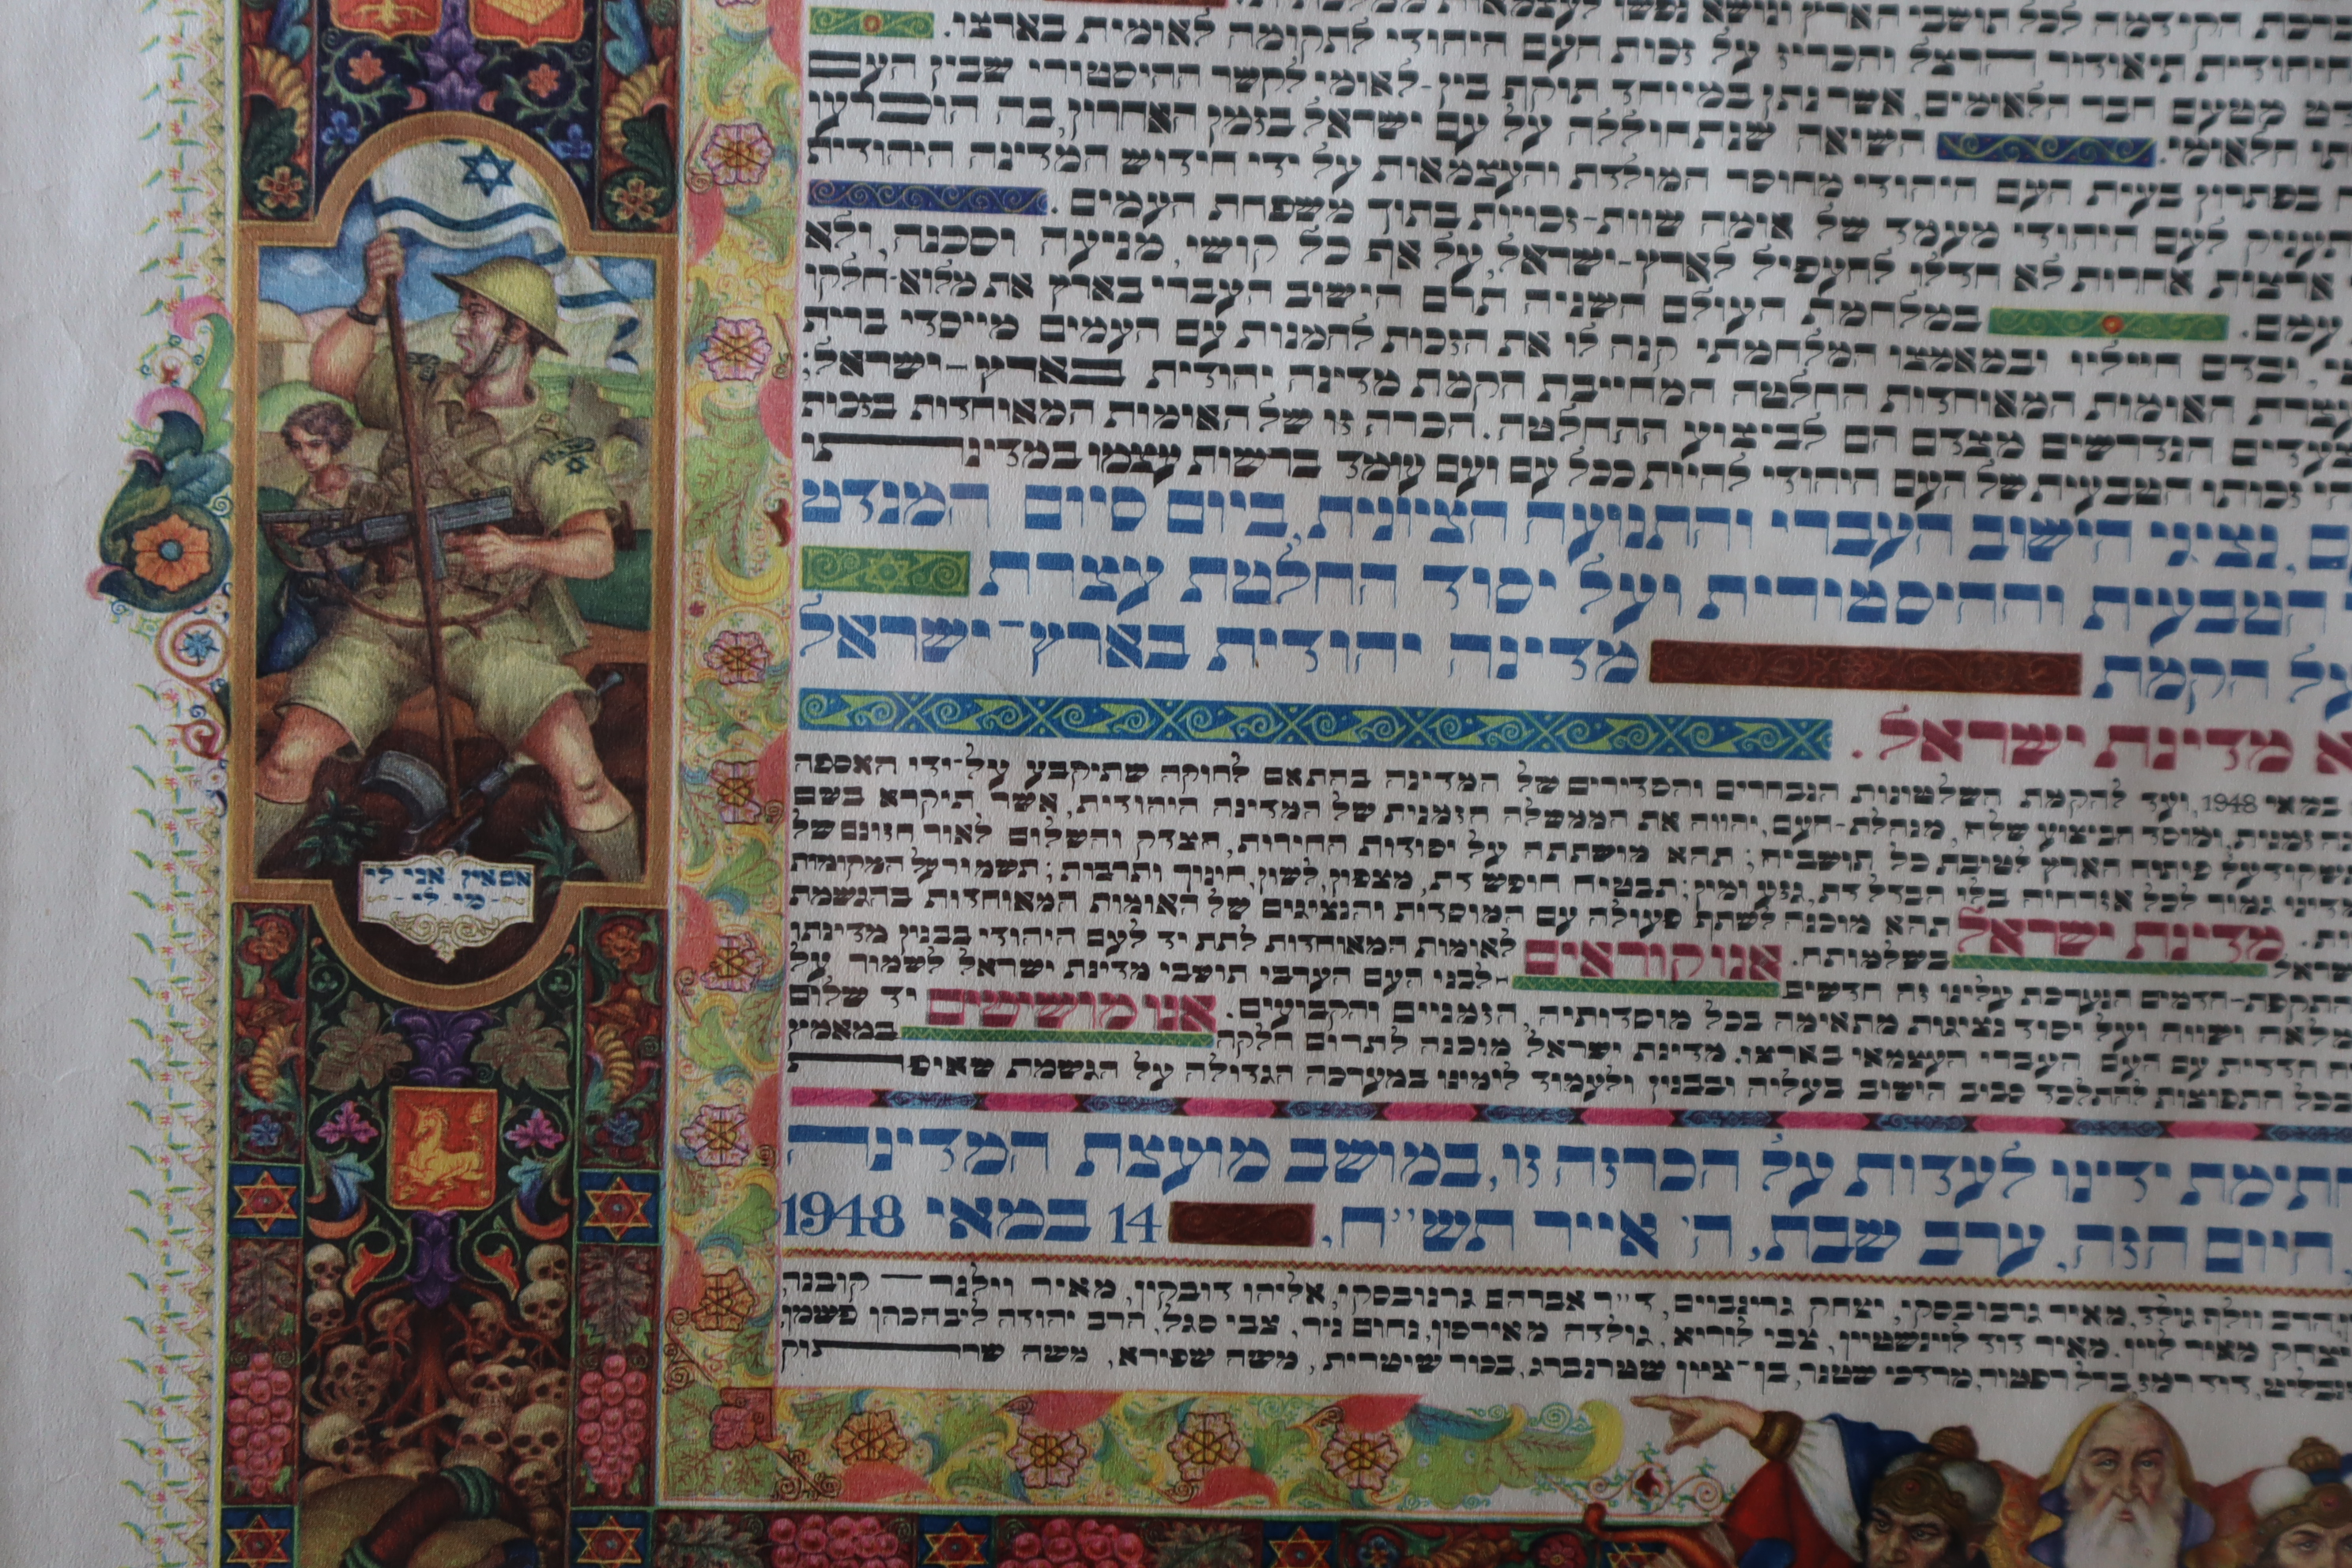 הקידמה לכל תושבי הארץ ונושא נפשו לעצמאות ממלכתית.
תיאודור הרצל והכריז על זכות העם היהודי לתקומה לאומית בארצו.
מטעם חבר הלאומים, אשר נתן במיוחד תוקף בין-לאומי לקשר ההיסטורי שבין העם
הלאומי. השואה שנתחוללה על עם ישראל בזמן האחרון, בה הוכרעו
בפתרון בעית העם היהודי מחוסר המולדת והעצמאות על ידי חידוש המדינה היהודית
לעם היהודי מעמד של אומה שוות-זכויות בתוך משפחת העמים.
אחרות לא חדלו להעפיל לארץ-ישראל, על אף כל קושי, מניעה וסכנה, ולא
עמם. במלחמת העולם השניה תרם הישוב העברי בארץ את מלוא-חלקו
ובדם חייליו ובמאמצו המלחמתי קנה לו את הזכות להמנות עם העמים מייסדי ברית
האומות המאוחדות החלטה המחייבת הקמת מדינה יהודית בארץ-ישראל;
הנדרשים מצדם הם לביצוע ההחלטה. הכרה זו של האומות המאוחדות בזכות
זכותו הטבעית של העם היהודי להיות ככל עם ועם עומד ברשות עצמו במדינתו
נציגי הישוב העברי והתנועה הציונית, ביום סיום המנדט
הטבעית וההיסטורית ועל יסוד החלטת עצרת
על הקמת מדינה יהודית בארץ-ישראל
מדינת ישראל.
במאי 1948, ועד להקמת השלטונות הנבחרים והסדירים של המדינה בהתאם לחוקה שתיקבע על-ידי האספה
זמנית, ומוסד הביצוע שלה, מנהלת-העם, יהווה את הממשלה הזמנית של המדינה היהודית, אשר תיקרא בשם
על פיתוח הארץ לטובת כל תושביה; תהא מושתתה על יסודות החירות, הצדק והשלום לאור חזונם של
גמור לכל אזרחיה בלי הבדל דת, גזע ומין; תבטיח חופש דת, מצפון, לשון, חינוך ותרבות; תשמור על המקומות
מדינת ישראל תהא מוכנה לשתף פעולה עם המוסדות והנציגים של האומות המאוחדות בהגשמת
בשלמותה. אנו קוראים לאומות המאוחדות לתת יד לעם היהודי בבנין מדינתו
התקפת-הדמים הנערכת עלינו זה חדשים - לבני העם הערבי תושבי מדינת ישראל לשמור על
מלאה ושווה ועל יסוד נציגות מתאימה בכל מוסדותיה, הזמניים והקבועים. אנו מושיטים יד שלום
הדדית עם העם העברי העצמאי בארצו. מדינת ישראל מוכנה לתרום חלקה במאמץ
בכל התפוצות להתלכד סביב הישוב בעליה ובבנין ולעמוד לימינו במערכה הגדולה על הגשמת שאיפת
חתימת ידינו לעדות על הכרזה זו, במושב מועצת המדינה
היום הזה, ערב שבת, ה' אייר תש"ח, 14 במאי 1948
הרב וולף גולד, מאיר גרבובסקי, יצחק גרינבוים, ד"ר אברהם גרנובסקי, אליהו דובקין, מאיר וילנר - קובנה
יצחק מאיר לוין, מאיר דוד לוינשטיין, צבי לוריא, גולדה מאירסון, נחום ניר, צבי סגל, הרב יהודה ליב הכהן פשמן,
דוד רמז, ברל רפטור, מרדכי שטנר, בן-ציון שטרנברג, בכור שיטרית, משה שפירא, משה שרתוק
אם אין אני לי
- מי לי -